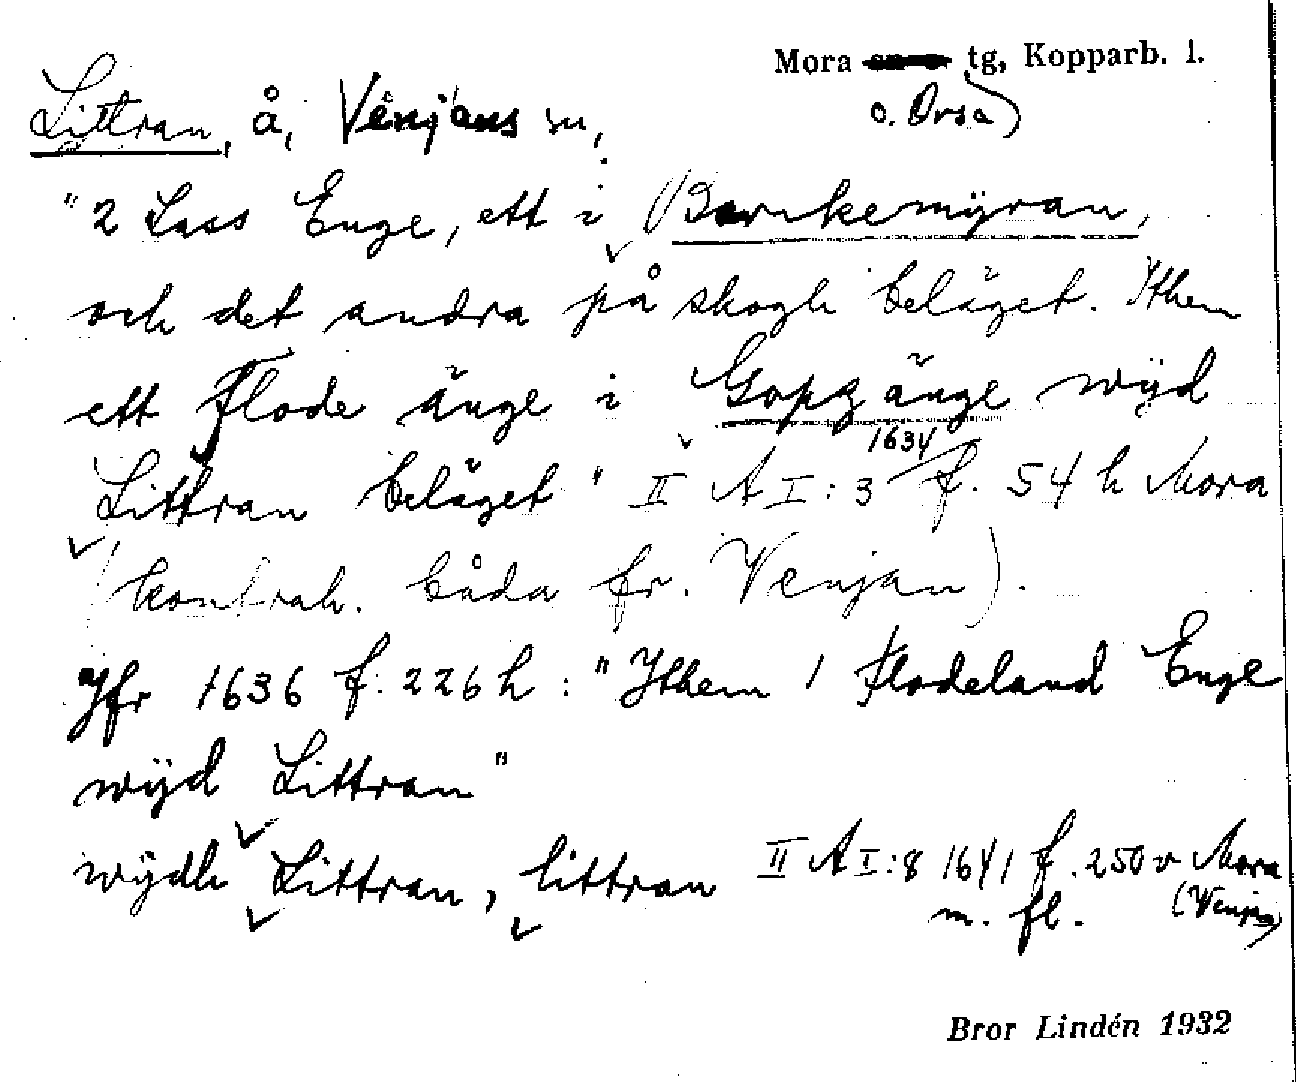 Mora tg, Kopparb. l.
o. Orsa)
Littran, å, Venjans sn,
"2 Lass Enge, ett i Bernkemÿran,
och det andra på skogh beläget. Ithem
ett Flode änge i Gopgänge wÿd
Littran beläget" II A I: 3 1634 f. 54 h Mora
(kontrah. båda fr. Venjan).
Jfr 1636 f. 226 h: "Ithem 1 Flodeland Enge
wÿd Littran"
wÿdh Littran, littran II A I: 8 1641 f. 250 v Mora
m. fl. (Venja)
Bror Lindén 1932